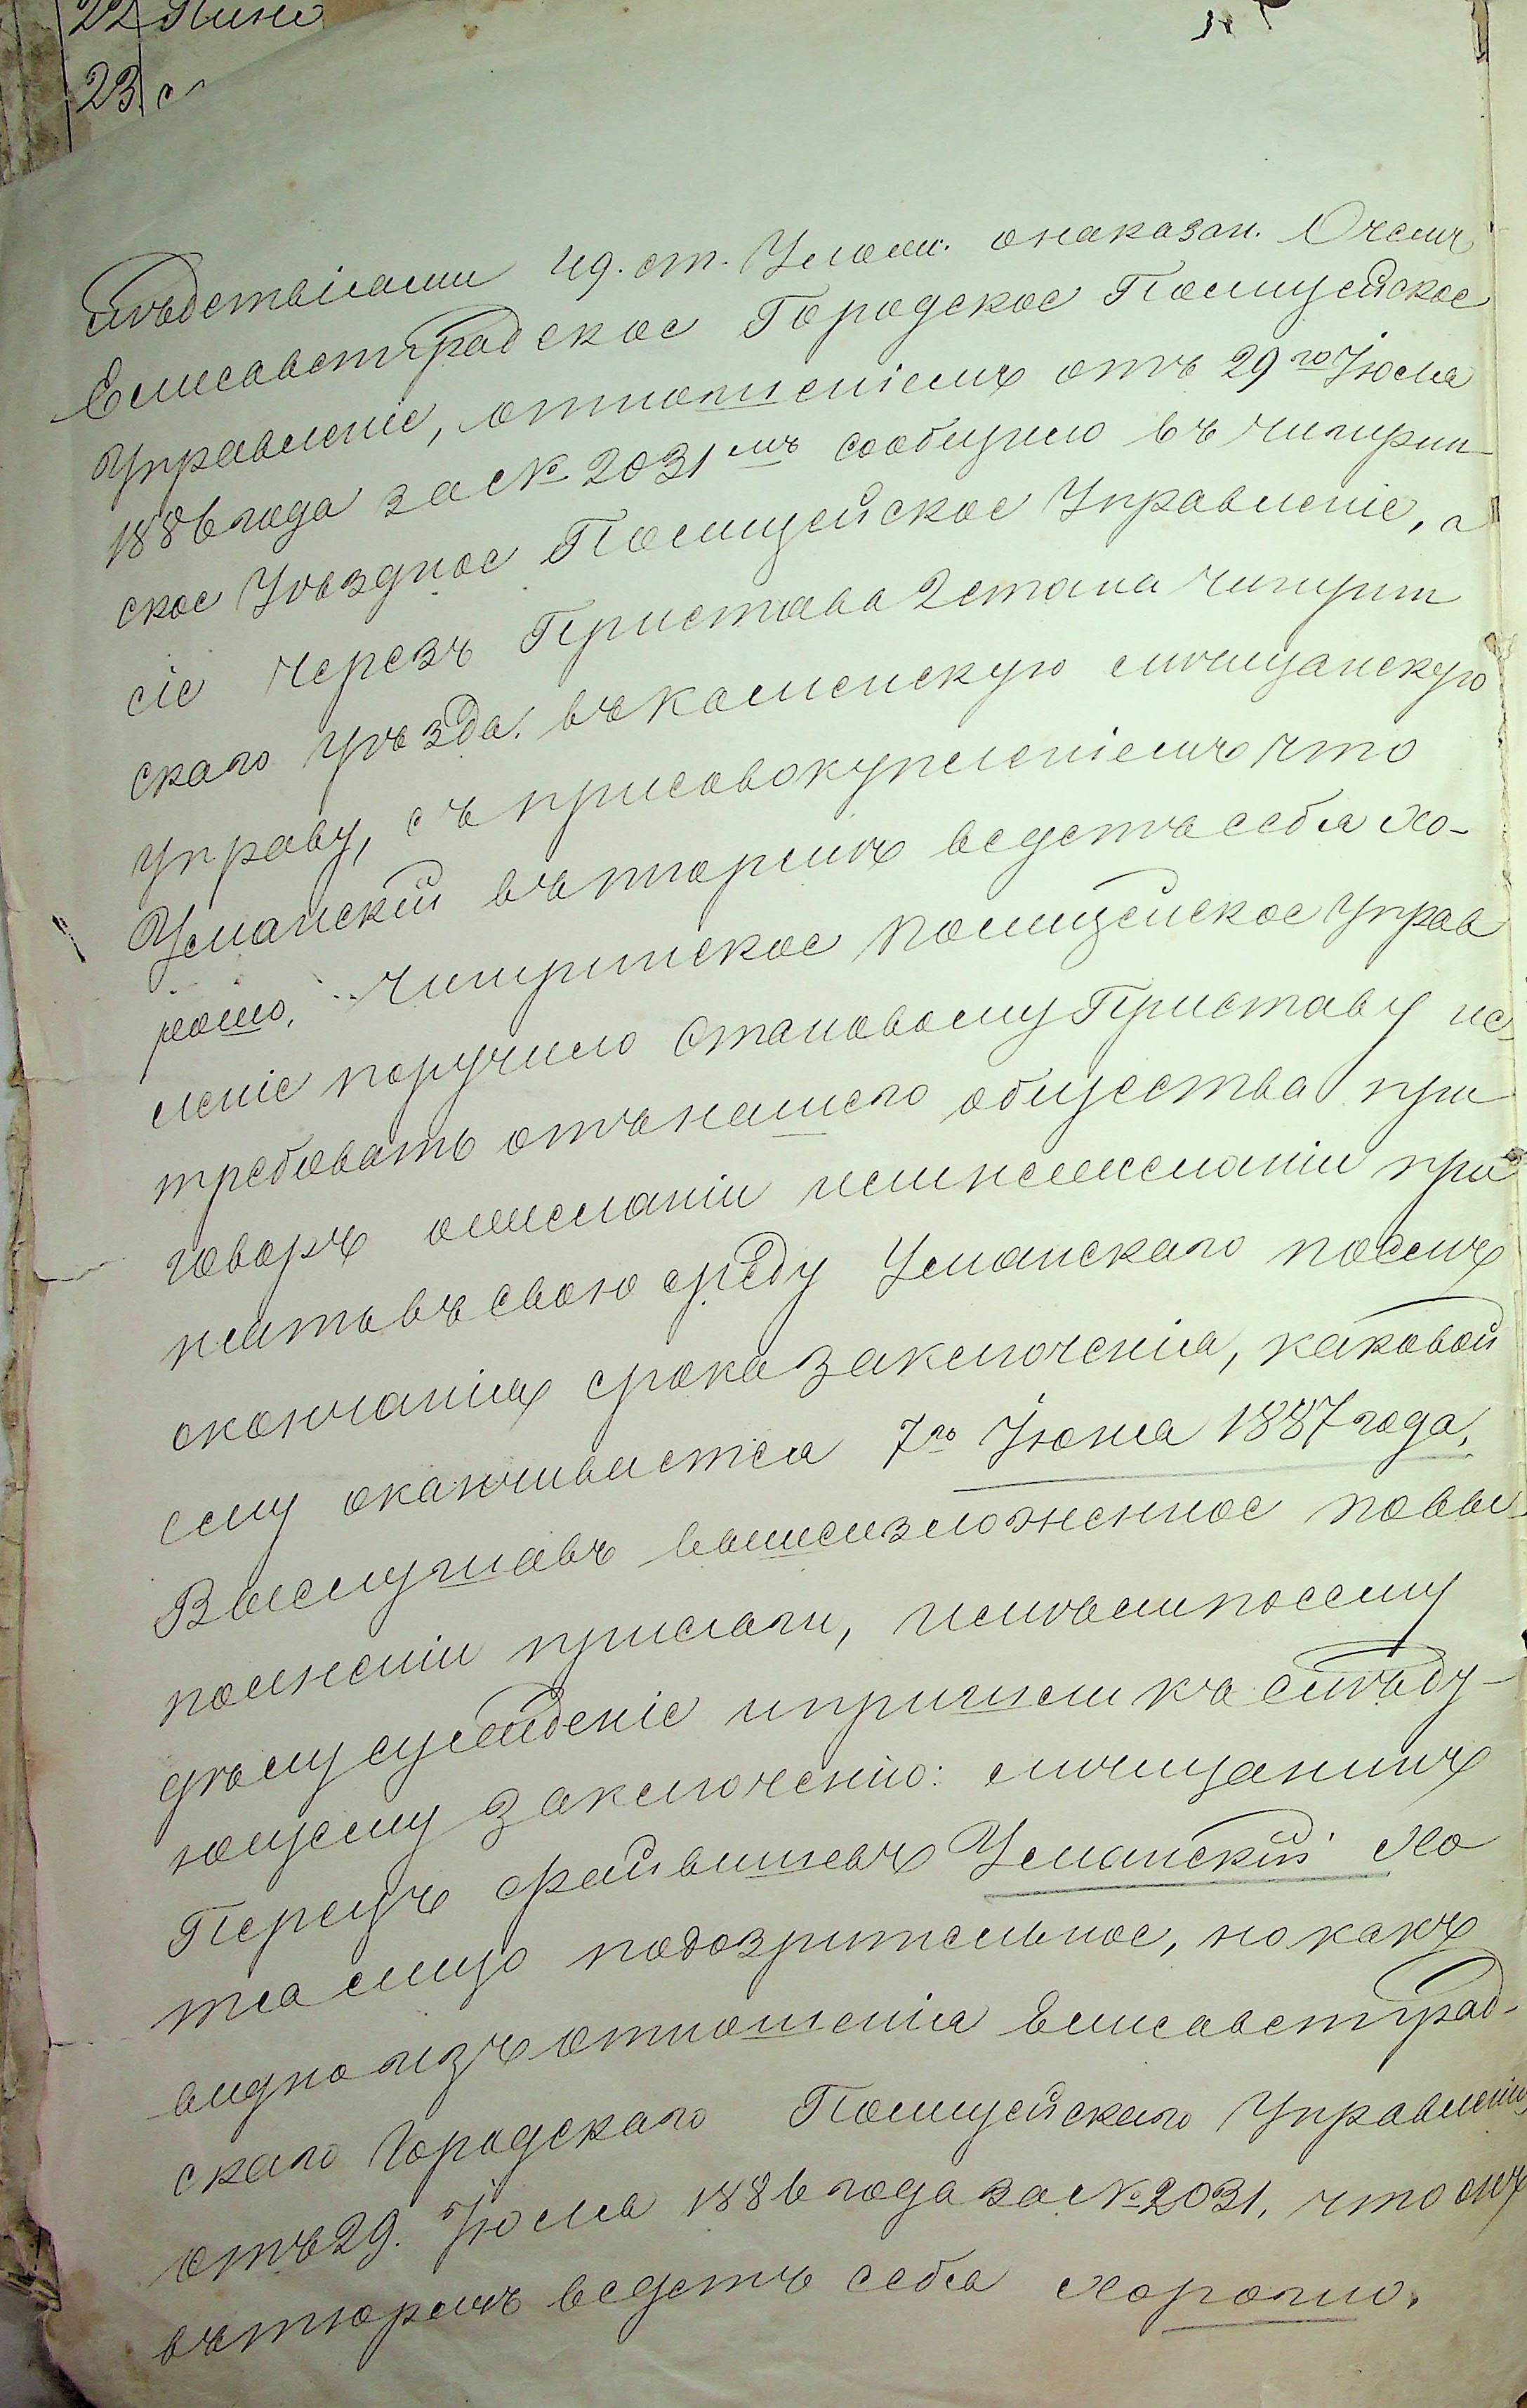 22 Пине
23
слѣдствіями 49. ст. Улож. онаказан. Очемъ
Елисаветградское Городское Полицейское
Управленіе, отношеніемъ отъ 29го Іюля
1886 года за № 2031мъ сообщило въ чигирин-
ское Уѣздное Полицейское Управленіе, а
сіе черезъ Пристава 2 стана чигирин
скаго уѣзда. въ каменскую мѣщанскую
управу, съ присовокупленіемъ что
Уманскій въ тюрьмѣ ведетъ себя хо-
рошо. Чигиринское полицейское управ
леніе поручило Становому Приставу ис
требовать отъ нашего общества при
говоръ ожеланіи илинежеланіи при
нять въ свою среду Уманскаго послѣ
окончанія срока заключенія, каковой
ему оканчивается 7го Іюня 1887 года.
Выслушавъ вышеизложенное повы-
полненіи присяги, имѣли посему
дѣлу сужденіе ипришли къ слѣду-
ющему заключенію: мѣщанинъ
Перецъ Срайвишевъ Уманскій хо
тя лицо подозрительное, но какъ
видно изъ отношенія Елисаветград-
скаго Городскаго Полицейскаго Управленія
отъ 29. Іюля 1886 года за № 2031, что онъ
въ тюрьмѣ ведетъ себя хорошо.